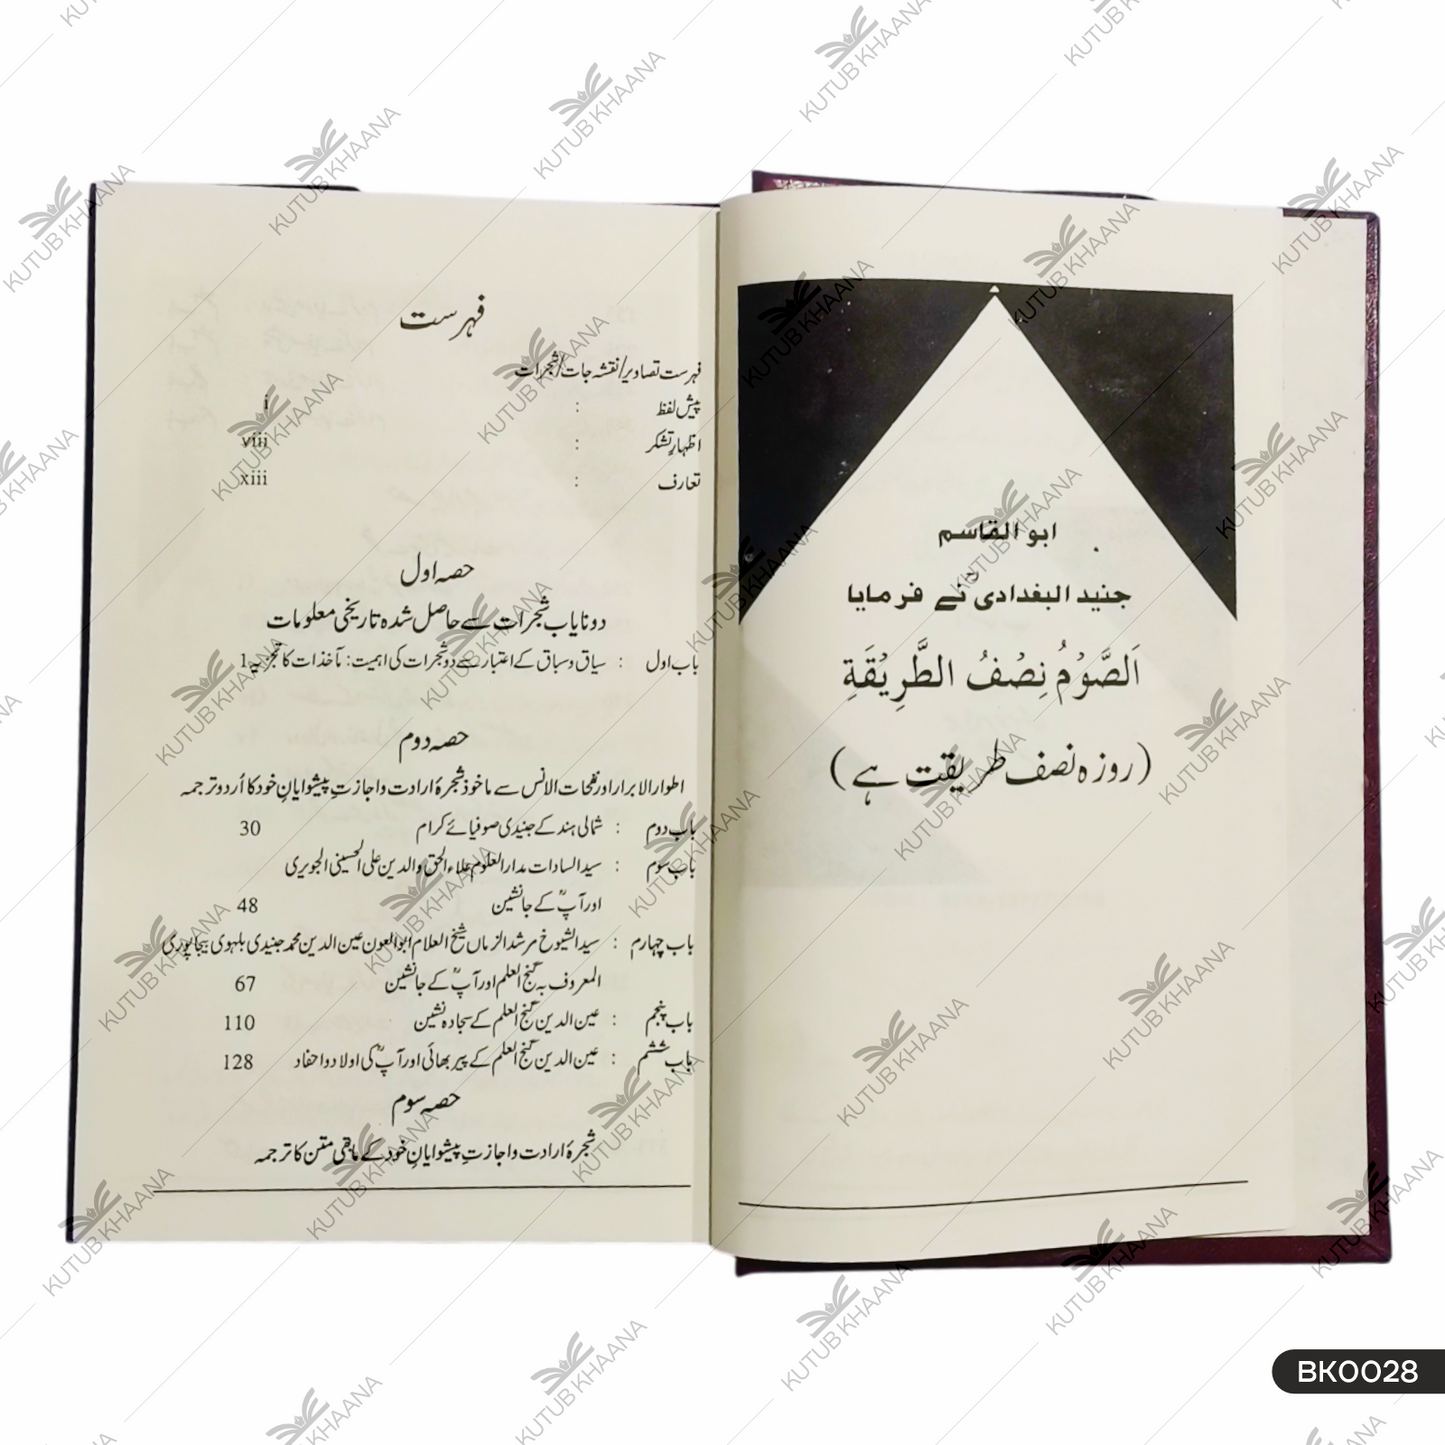 ابو القاسم
جنید البغدادیؒ نے فرمایا
اَلصَّوْمُ نِصْفُ الطَّرِيْقَةِ
(روزہ نصف طریقت ہے)
فہرست
فہرست تصاویر/نقشہ جات/شجرات
پیش لفظ : i
اظہارِ تشکر : viii
تعارف : xiii
حصہ اول
دو نایاب شجرات سے حاصل شدہ تاریخی معلومات
باب اول : سیاق و سباق کے اعتبار سے دو شجرات کی اہمیت: مآخذات کا تجزیہ 1
حصہ دوم
اطوار الابرار اور نفحات الانس سے ماخوذ شجرۂ ارادت و اجازتِ پیشوایانِ خود کا اُردو ترجمہ
باب دوم : شمالی ہند کے جنیدی صوفیائے کرام 30
باب سوم : سید السادات مدار العلوم علاء الحق والدین علی الحسینی الجویری
اور آپؒ کے جانشین 48
باب چہارم : سید الشیوخ مرشد الزماں شیخ العلام ابوالعون عین الدین محمد جنیدی بلہوی بیجاپوری
المعروف بہ گنج العلم اور آپؒ کے جانشین 67
باب پنجم : عین الدین گنج العلم کے سجادہ نشین 110
باب ششم : عین الدین گنج العلم کے پیر بھائی اور آپؒ کی اولاد و احفاد 128
حصہ سوم
شجرۂ ارادت و اجازتِ پیشوایانِ خود کے مابقی متن کا ترجمہ
KUTUB KHAANA
BK0028